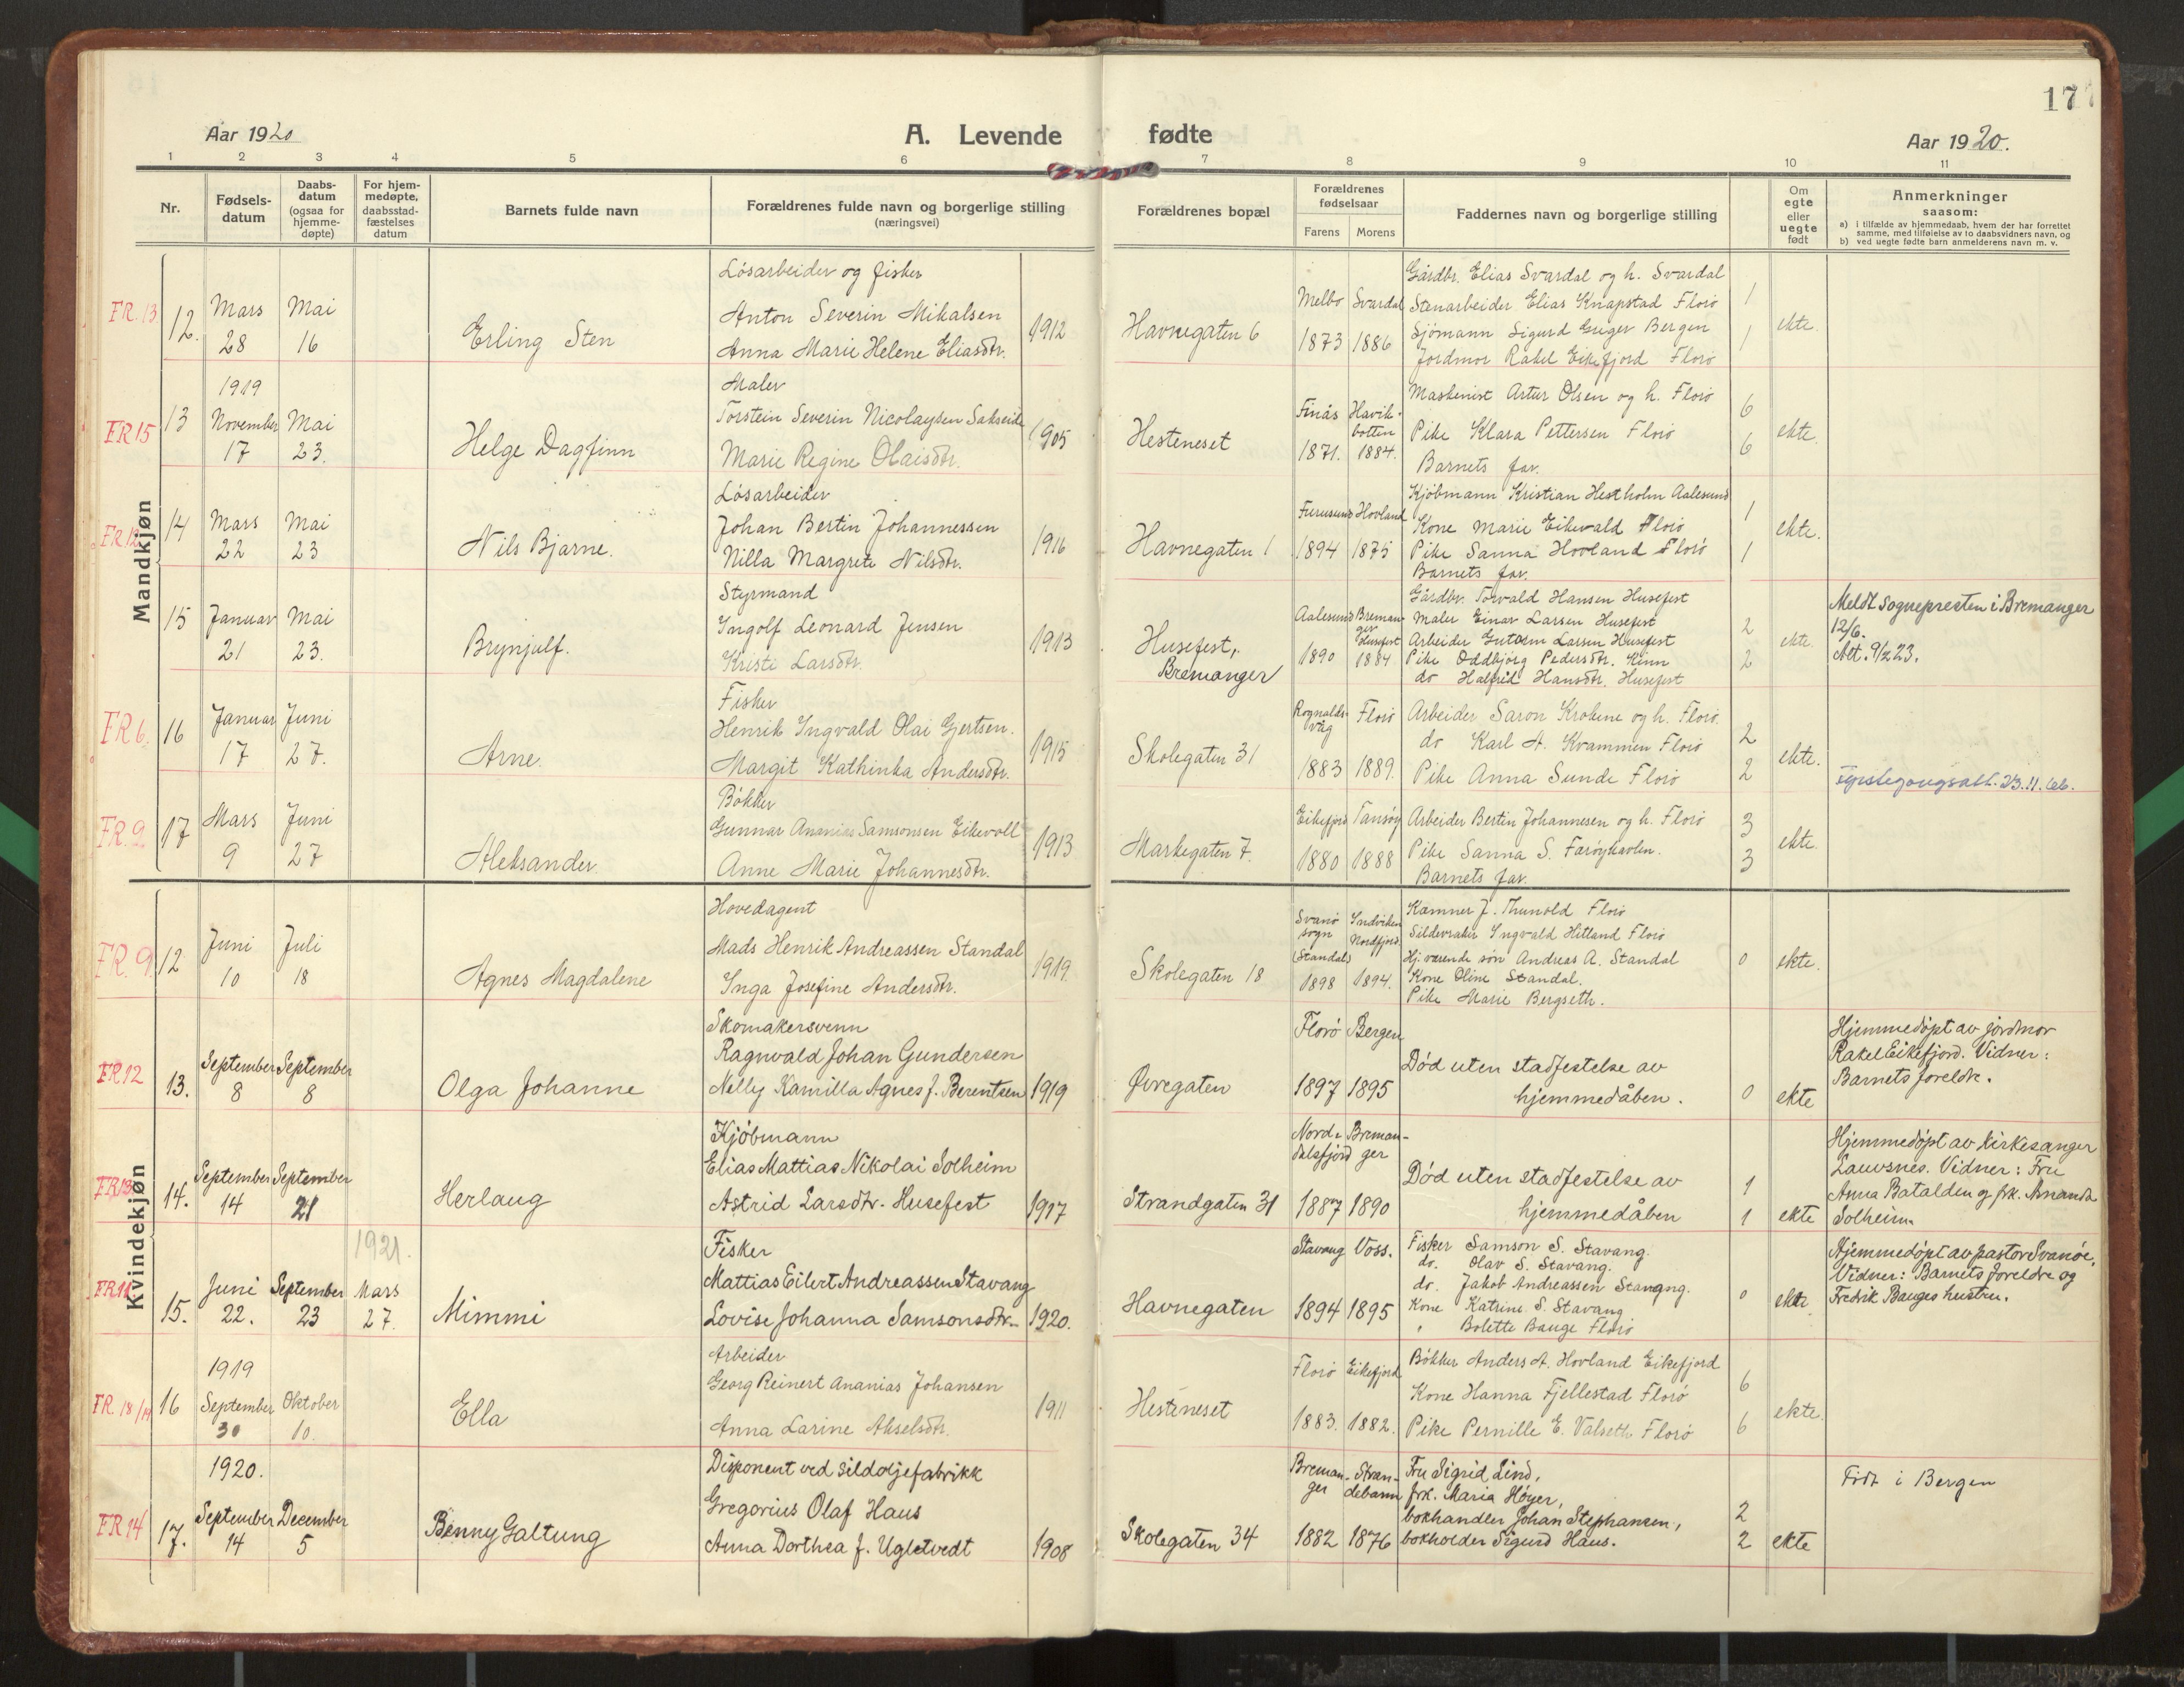 17
Aar 1920
A. Levende fødte
Aar 1920.
1 2 3 4 5 6 7 8 9 10 11
Nr.
Fødsels-
datum
Daabs-
datum
(ogsaa for
hjemme-
døpte)
For hjem-
medøpte,
daabsstad-
fæstelses
datum
Barnets fulde navn
Forældrenes fulde navn og borgerlige stilling
(næringsvei)
Forældrenes bopæl
Forældrenes
fødselsaar
Farens Morens
Faddernes navn og borgerlige stilling
Om
egte
eller
uegte
født
Anmerkninger
saasom:
a) i tilfælde av hjemmedaab, hvem der har forrettet
samme, med tilføielse av to daabsvidners navn, og
b) ved uegte fødte barn anmelderens navn m. v.
Mandkjøn
FR. 13
12.
Mars
28
Mai
16
Erling Sten
Lósarbeider og fisker
Anton Severin Mikalsen
Anna Marie Helene Eliasdtr.
1912
Havnegaten 6
Melbo Svardal
1873 1886
Gårdbr. Elias Svardal og h. Svardal
Stenarbeider Elias Knapstad Florö
Sjömann Sigurd Bergen
Jordmor Rakel Eikefjord Florö
1
1
ekte.
FR 15
13
1919
November
17
Mai
23.
Helge Dagfinn
Maler
Torstein Severin Nicolaysen
Marie Regine Olaisdtr.
1905
Hesteneset
Finås Havik-
botten
1871. 1884.
Maskinist Artur Olsen og h. Florö
Pike Klara Pettersen Florö
Barnets far.
6
6
ekte.
FR 12
14
Mars
22
Mai
23
Nils Bjarne.
Lösarbeider
Johan Bertin Johannessen
Nilla Margrete Nilsdtr.
1916
Havnegaten 1
Furusund Hovland
1894 1875
Kjöbmann Kristian Hestholm Aalesund
Kone Marie Eikevald Florö
Pike Sanna Hovland Florö
Barnets far.
1
1
ekte.
15
Januar
21
Mai
23.
Brynjulf.
Styrmand
Ingolf Leonard Jensen
Kristi Larsdtr.
1913
Husefest,
Bremanger
Aalesund Breman-
ger
Husefest
1890 1884
Gårdbr. Torvald Hansen Husefest
Maler Einar Larsen Husefest
Arbeider Gutorm Larsen Husefest
Pike Oddbjörg Pedersdtr. Kinn
do Halfrid Hansdtr. Husefest
2
2
ekte.
Meldt sognepresten i Bremanger
12/6.
Att. 9/2 23.
FR 6.
16
Januar
17
Juni
27.
Arne.
Fisker
Henrik Ingvald Olai Gjertsen.
Margit Kathinka Andersdtr.
1915
Skolegaten 31
Rognalds-
våg
Florö
1883 1889.
Arbeider Saron Krokene og h. Florö.
do Karl A. Kvammen Florö
Pike Anna Sunde Florö
2
2
ekte.
Förstegangsatt. 23.11.
FR. 9
17
Mars
9
Juni
27
Aleksander.
Bökker
Gunnar Ananias Samsonsen Eikevoll
Anne Marie Johannesdtr.
1913
Markegaten 7.
Eikefjord Tansöy
1880 1888
Arbeider Bertin Johannesen og h. Florö
Pike Sanna S. Faröyhavlen.
Barnets far.
3
3
ekte.
Kvindekjøn
FR. 9
12
Juni
10
Juli
18
Agnes Magdalene
Hovedagent
Mads Henrik Andreassen Standal
Inga Josefine Andersdtr.
1919.
Skolegaten 18
Svanö
sogn
(Standal)
Indviken
Nordfjord.
1898 1894.
Kæmner J. Thunold Florö
Sildevraker Ingvald Hitland Florö
Hj. værende sön Andreas A. Standal
Kone Oline Standal.
Pike Marie Bergseth.
0
ekte.
FR 12
13.
September
8
September
8
Olga Johanne
Skomakersvenn
Ragnvald Johan Gundersen
Nelly Kamilla Agnes f. Berentsen
1919
Øvregaten
Florö Bergen
1897 1895
Död uten stadfestelse av
hjemmedåben.
0
ekte
Hjemmedöpt av jordmor
Rakel Eikefjord. Vidner:
Barnets foreldre.
FR 13
14.
September
14
September
21
Herlaug
Kjöbmann
Elias Mattias Nikolai Solheim
Astrid Larsdtr. Husefest
1917
Strandgaten 31
Nord-
dalsfjord
Breman-
ger
1887 1890
Död uten stadfestelse av
hjemmedåben
1
1
ekte
Hjemmedöpt av kirkesanger
Lauvsnes. Vidner: Fru
Anna Batalden og frk. Amanda
Solheim.
FR 11
15.
Juni
22.
September
23
1921.
Mars
27.
Mimmi
Fisker
Mattias Eilert Andreassen Stavang
Lovise Johanna Samsonsdtr.
1920.
Havnegaten
Stavang Voss.
1894 1895
Fisker Samson S. Stavang.
do. Olav S. Stavang.
do. Jakob Andreassen Stavang.
Kone Katrine S. Stavang
" Bolette Bauge Florö
0
ekte.
Hjemmedöpt av pastor Svanöe.
Vidner: Barnets foreldre og
Fredrik Bauges hustru.
FR. 18/19
16
1919
September
30
Oktober
10.
Ella
Arbeider
Georg Reinert Ananias Johansen
Anna Larine Akselsdtr.
1911
Hesteneset
Florö Eikefjord
1883. 1882.
Bökker Anders A. Hovland Eikefjord
Kone Hanna Fjellestad Florö
Pike Pernille E. Valseth Florö
6
6
ekte.
FR 14
17.
1920.
September
14
December
5
Benny Galtung
Disponent ved sildoljefabrikk
Gregorius Olaf Haus
Anna Dorthea f. Ugletvedt
1908
Skolegaten 34
Breman-
ger
Stran-
debarm
1882 1876
Fru Sigrid Lind,
frk. Maria Höyer,
bokhandler Johan Stephansen,
bokholder Sigurd Haus.
2
2
ekte
Födt i Bergen